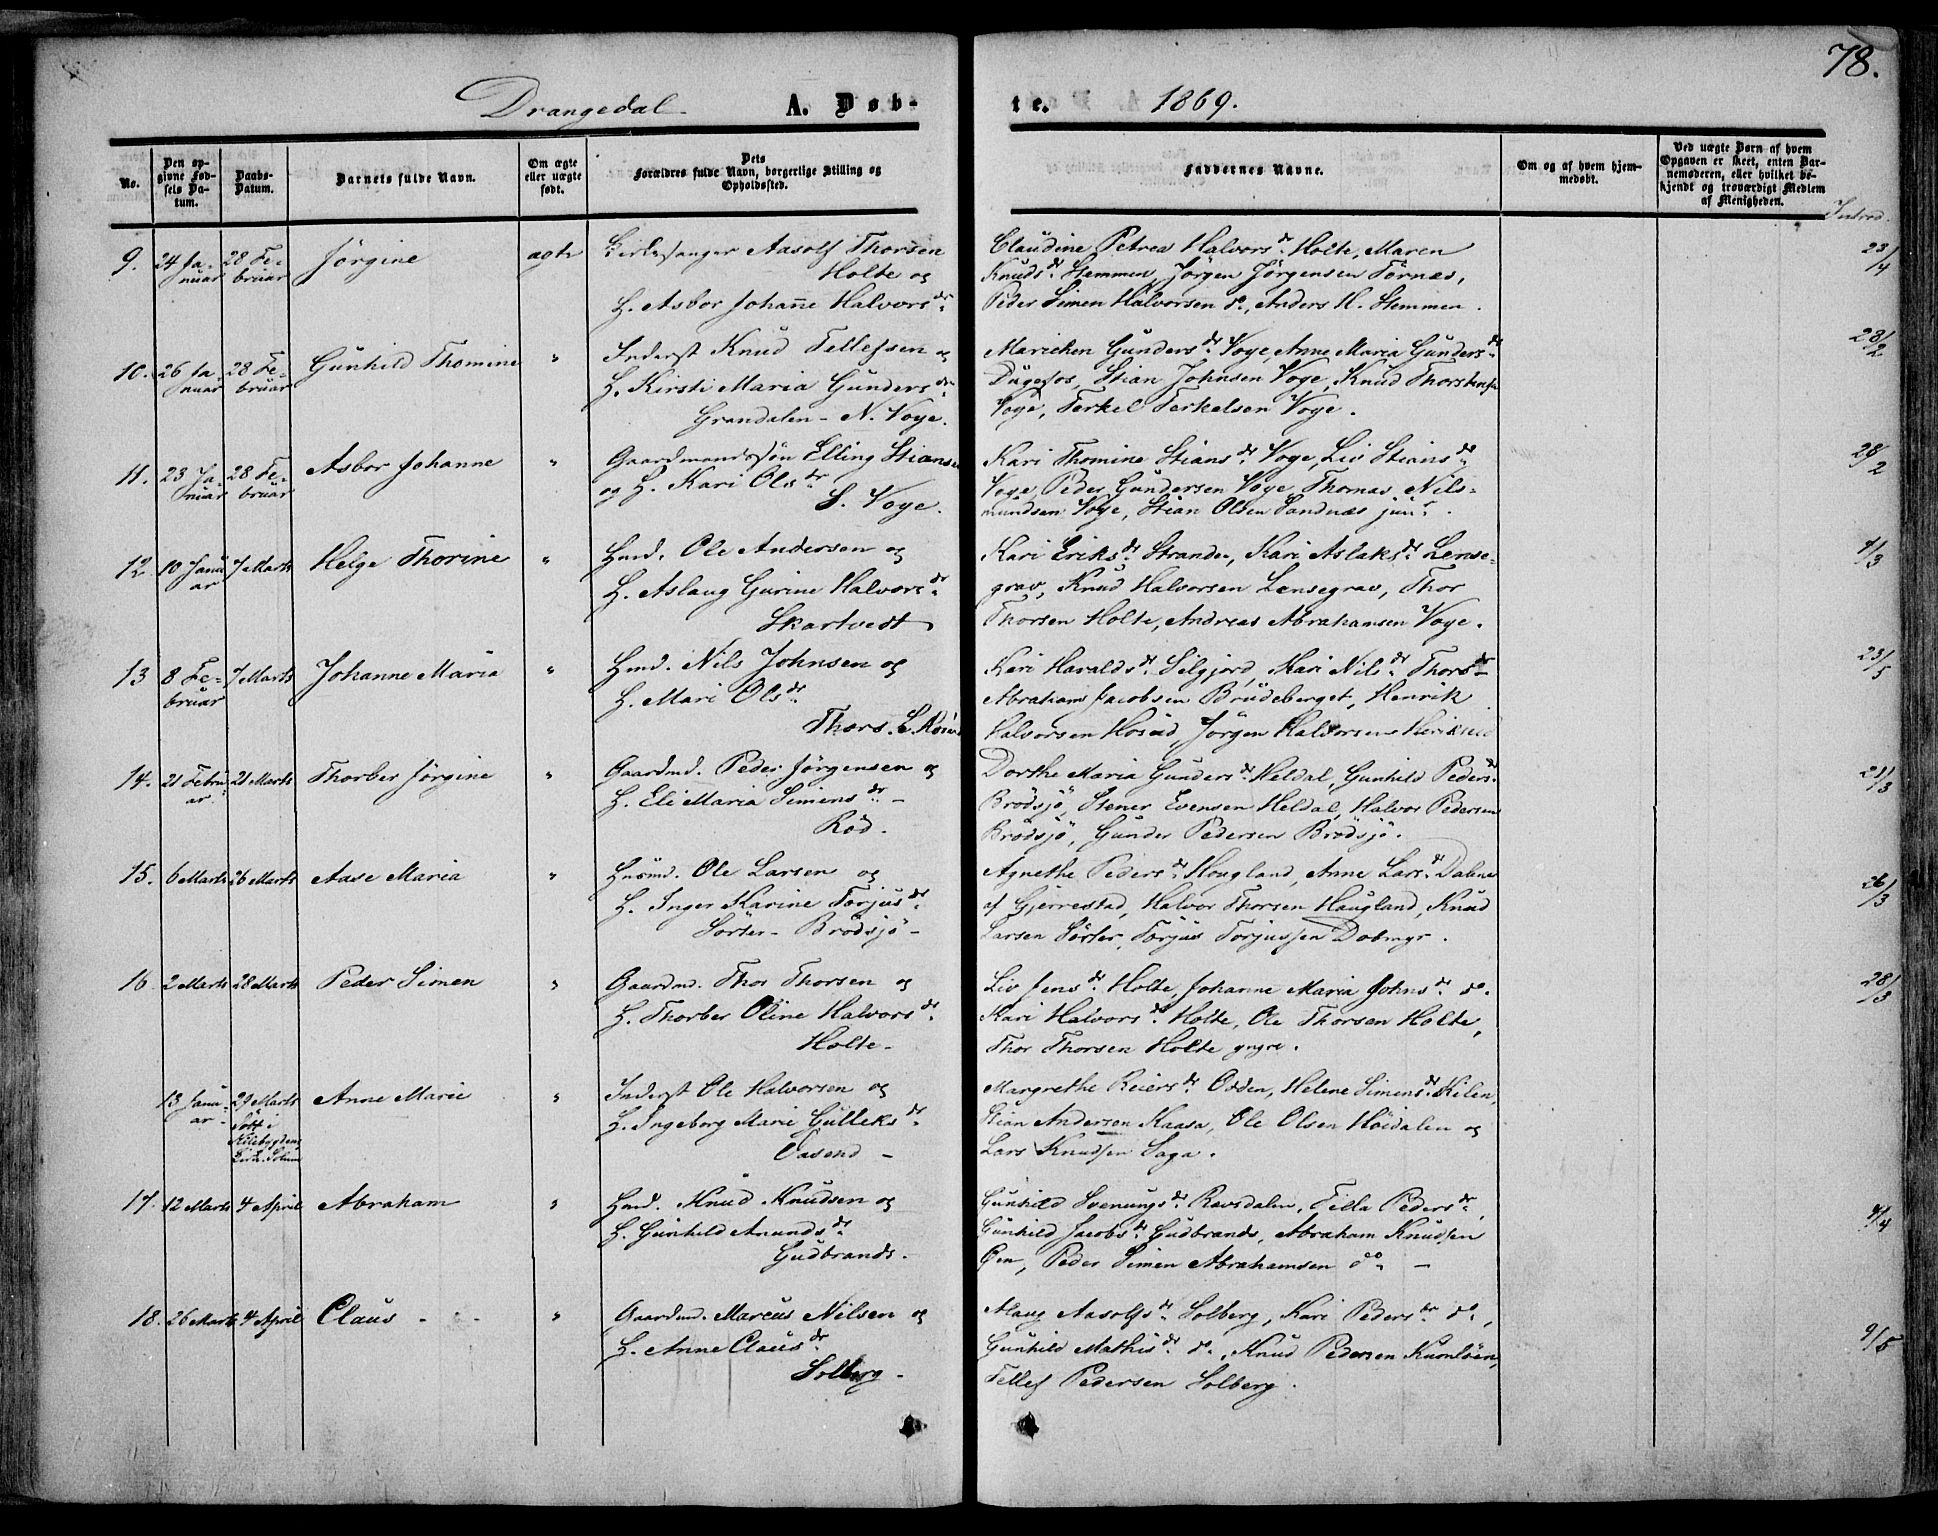 78.
Drangedal A. Døb- te. 1869.
No.
Den op-
givne Fød-
sels Da-
tum.
Daabs-
Datum.
Barnets fulde Navn.
Om ægte
eller uægte
født.
Dets
Forældres fulde Navn, borgerlige Stilling og
Opholdssted.
Faddernes Navne.
Om og af hvem hjem-
medøbt.
Ved uægte Børn af hvem
Opgaven er skeet, enten Bar-
nemoderen, eller hvilket be-
kjendt og troværdigt Medlem
af Menigheden.
Introd.
9. 24 Ja- 28 Fe- Jörgine ægte Kirkesanger Aasolf Thorsen
nuar bruar Holte og
H. Asbor Johanne Halvorsdr
Claudine Petrea Halvorsdr Holte, Maren
Knudsdr Stemmen, Jörgen Jörgensen Törnes,
Peder Simen Halvorsen do, Anders H. Stemmen.
23/4
10. 26 Ja- 28 Fe- Gunhild Thomine " Inderst Knud Tellefsen og
nuar bruar H. Kirsti Maria Gundersdr
Grandalen - N. Voje.
Marichen Gundersdr Voje, Anne Maria Gundersdr
Dugesos, Stian Johnsen Voje, Knud Thorstensen
Voje, Terkel Terkelsen Voje.
28/2
11. 23 Ja- 28 Fe- Asbor Johanne " Gaardmandssön Elling Stiansen
nuar bruar og H. Kari Olsdr
S. Voje.
Kari Thomine Stiansdr Voje, Liv Stiansdr
Voje, Peder Gundersen Voje, Thomas Nils-
mundsen Voje, Stian Olsen Sandnæs junr.
28/2
12. 10 Janu- 7 Marts Helge Thorine " Hmd. Ole Andersen og
ar H. Aslaug Gurine Halvorsdr
Skartvedt
Kari Eriksdr Strande, Kari Aslaksdr Lense-
grav, Knud Halvorsen Lensegrav, Thor
Thorsen Holte, Andreas Abrahamsen Voje.
7/3
13 8 Fe- 7 Marts Johanne Maria " Hmd. Nils Johnsen og
bruar H. Mari Olsdr
Thors.
Kari Haraldsdr Silgjord, Kari Nilsdr Thorsdr
Abraham Jacobsen Brudeberget, Henrik
Halvorsen Hosud, Jörgen Halvorsen Heriksud
23/5
14. 21 Febru- 21 Marts Thorber Jörgine " Gaardmd. Peder Jörgensen og
ar H. Eli Maria Simensdr -
Röd.
Dorthe Maria Gundersdr Heldal, Gunhild Pedersdr
Brödsjö, Stener Evensen Heldal, Halvor Pedersen
Brödsjö, Gunder Pedersen Brödsjö.
21/3
15. 6 Marts 26 Marts Aase Maria " Husmd. Ole Larsen og
H. Inger Karine Torjusdr
Sörter - Brödsjö -
Agnethe Pedersdr Hougland, Anne Larsdr Dalene
af Gjerrestad, Halvor Thorsen Haugland, Knud
Larsen Sörter, Torjus Torjussen Dobmyr.
26/3
16. 2 Marts 28 Marts Peder Simen " Gaardmd. Thor Thorsen og
H. Thorber Oline Halvorsdr
Holte -
Liv Jensdr Holte, Johanne Maria Johnsdr do.
Kari Halvorsdr Holte, Ole Thorsen Holte,
Thor Thorsen Holte yngre.
28/3
13 Janu- 29 Marts Anne Marie " Inderst Ole Halvorsen og
ar Döbt i H. Ingeborg Marie Gulleksdr
Kilebygdens Oasend -
Kirke Solum
Margrethe Reiersdr Odden, Helene Simensdr Kilen,
Stian Andersen Kaasa, Ole Olsen Höidalen og
Lars Knudsen Saga.
17. 12 Marts 4 April Abraham " Hmd. Knud Knudsen og
H. Gunhild Anundsdr
Gudbrands -
Gunhild Svenungsdr Ravsdalen, Tilla Pedersdr,
Gunhild Jacobsdr Gudbrands, Abraham Knudsen
Öen, Peder Simen Abrahamsen do -
4/4
18. 26 Marts 4 April Claus - - - " Gaardmd. Marcus Nilsen og
H. Anne Clausdr
Solberg -
Aslaug Aasolfsdr Solberg, Kari Pedersdr do,
Gunhild Mathisdr do, Knud Pedersen Kurnlöen,
Tellef Pedersen Solberg.
9/5